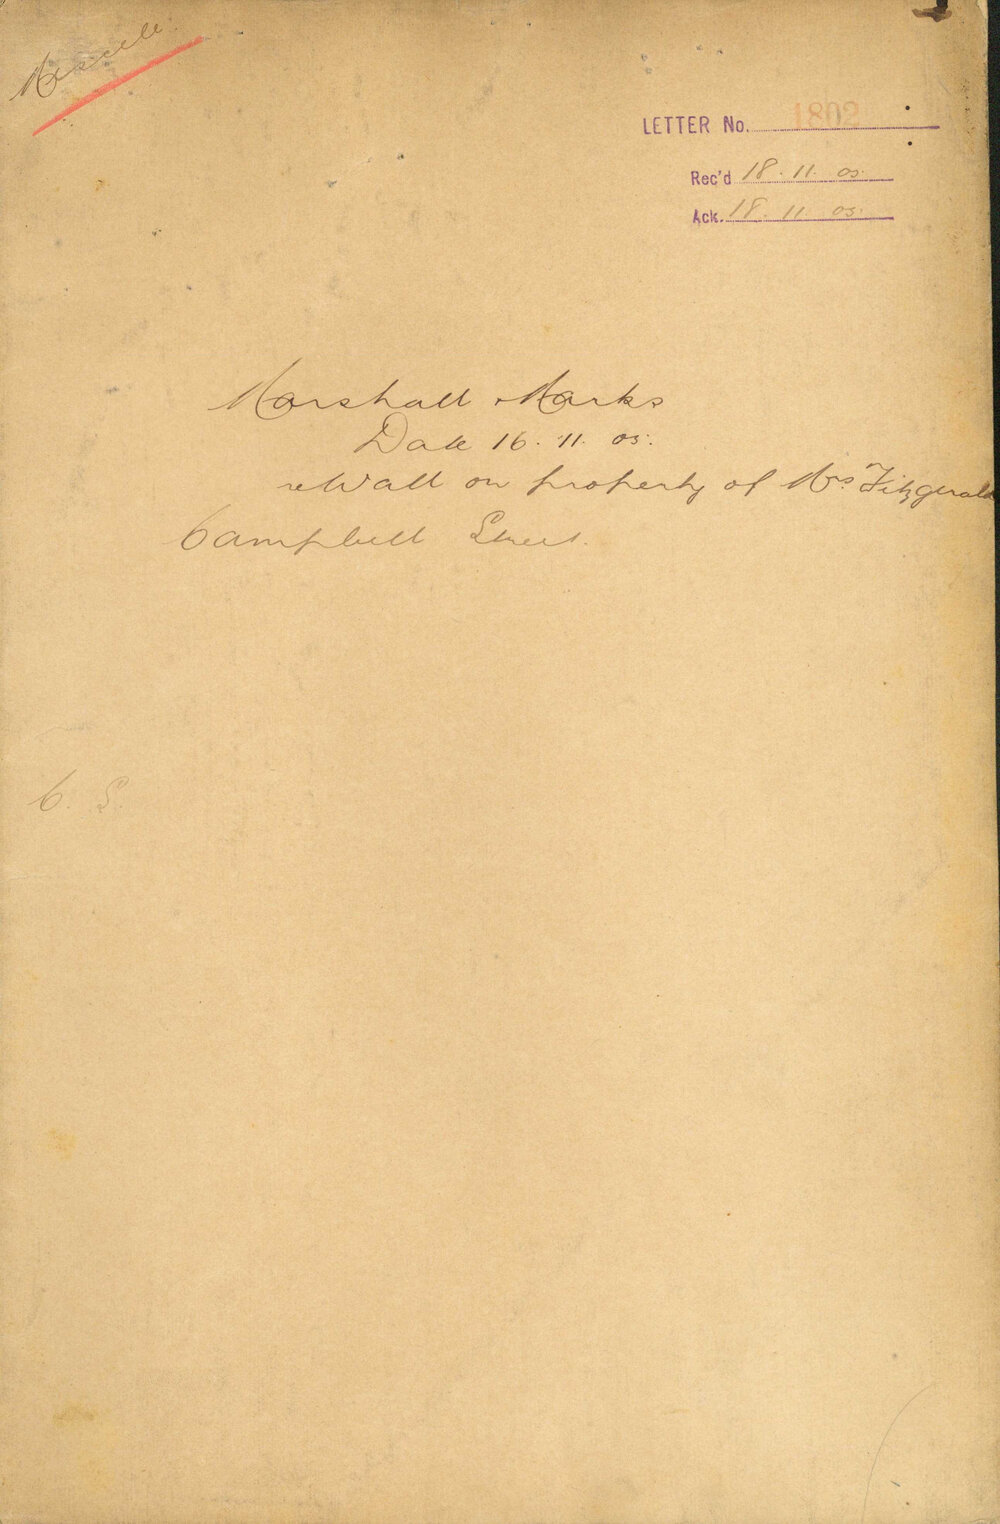 Miscell.
LETTER No. 1802
Rec'd 18.11.05.
Ack. 18.11.05.
Marshall Marks
Date 16.11.05.
re Wall on property of Mrs Fitzgerald
Campbell Street.
C. S.